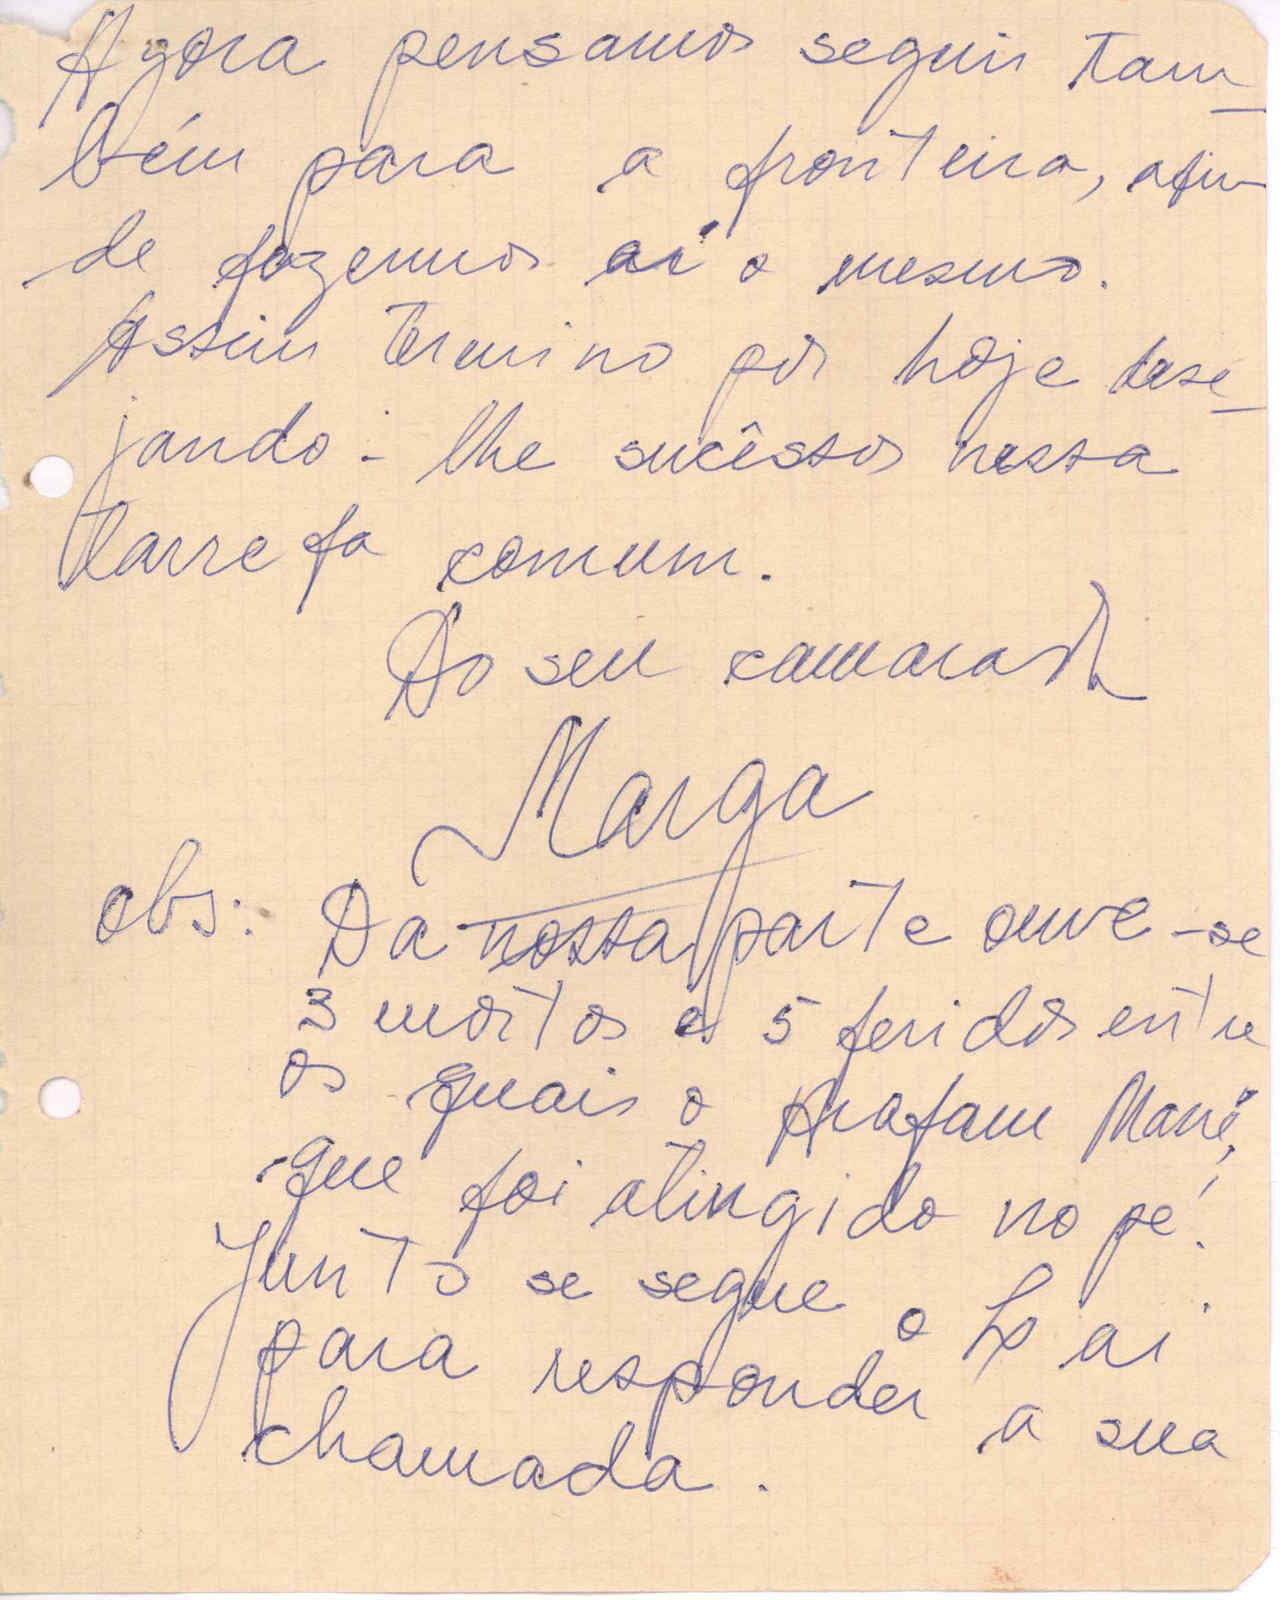 Agora pensamos seguir tam-
bém para a fronteira, afim
de fazermos aí o mesmo.
Assim termino por hoje dese-
jando-lhe sucêssos nessa
tarrefa comum.
Do seu camarada
Marga
obs: Da nossa parte ouve-se
3 mortos e 5 feridos entre
os quais o Anafam Mané,
que foi atingido no pé.
Junto se segue o aí
para responder a sua
chamada.